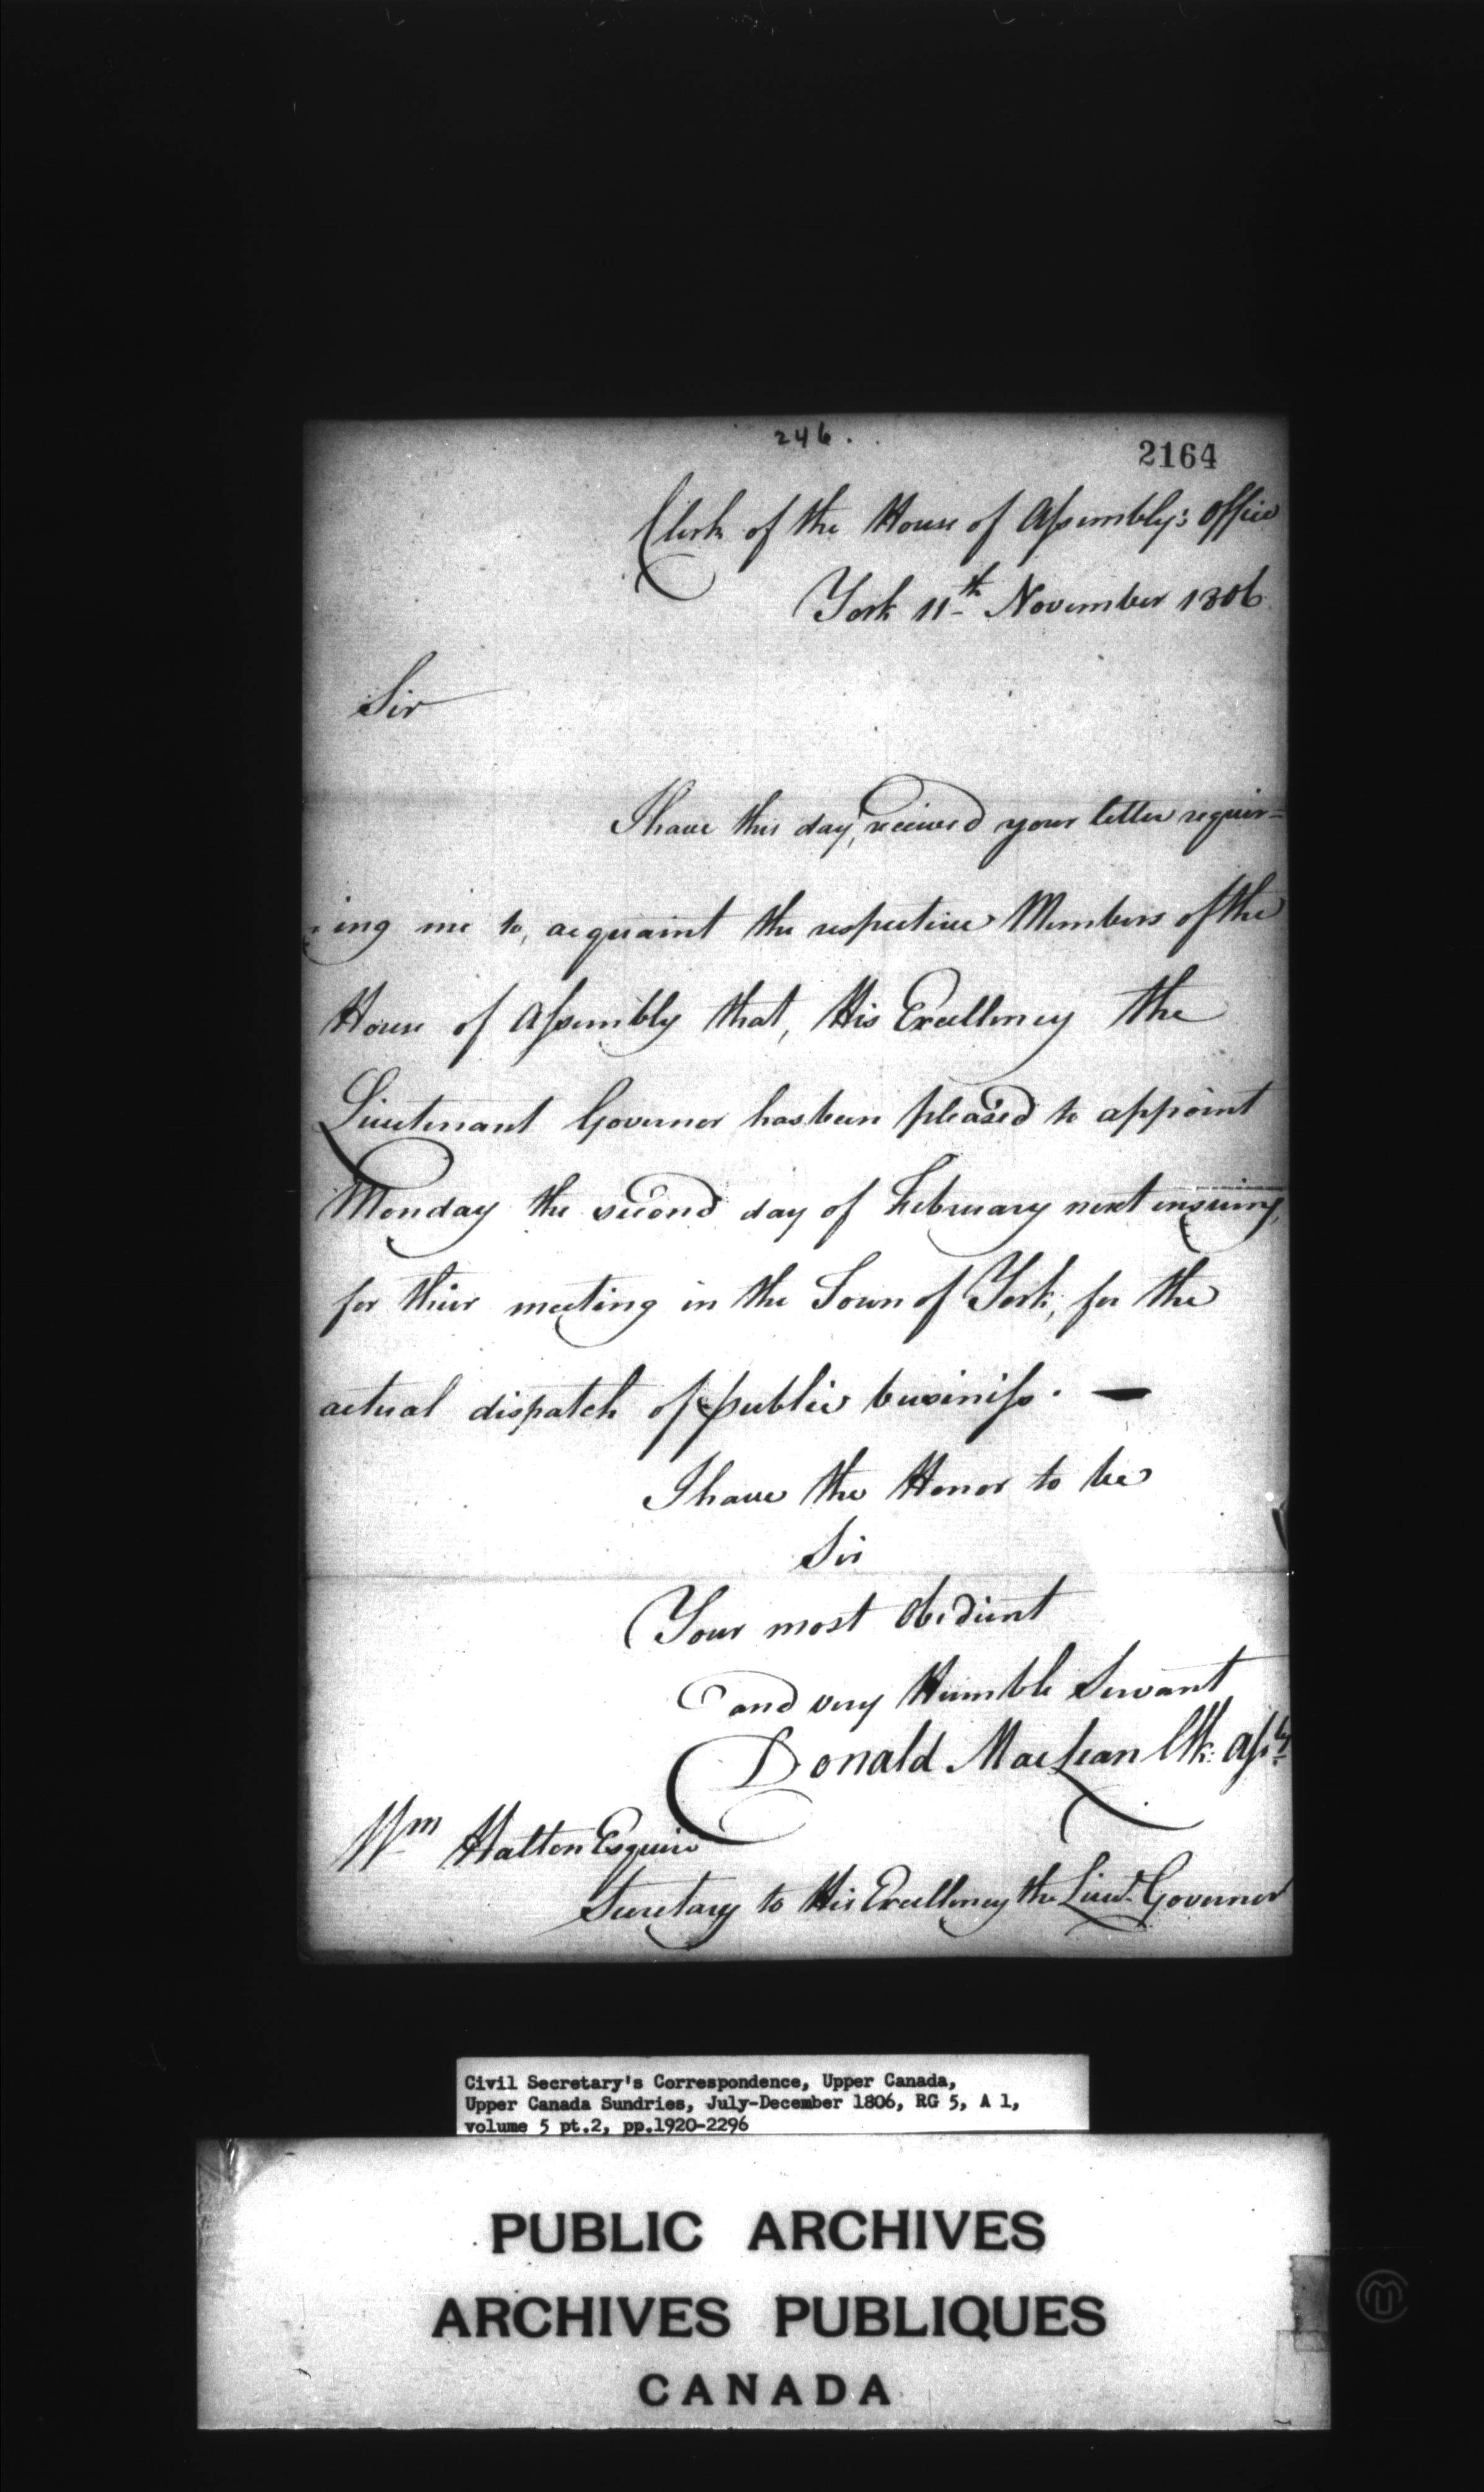 246.
2164
Clerk of the House of Assembly's Office
York 11th November 1806
Sir
I have this day, received your letter requir=
=ing me to, acquaint the respective Members of the
House of Assembly that, His Excellency the
Lieutenant Governor has been pleased to appoint
Monday the second day of February next ensuing,
for their meeting in the Town of York, for the
actual dispatch of public business. —
I have the Honor to be
Sir
Your most Obedient
and very Humble Servant
Donald MacLean Clk. Assly.
Wm Halton Esquire
Secretary to His Excellency the Lieut. Governor
Civil Secretary's Correspondence, Upper Canada,
Upper Canada Sundries, July-December 1806, RG 5, A 1,
volume 5 pt.2, pp.1920-2296
PUBLIC ARCHIVES
ARCHIVES PUBLIQUES
CANADA